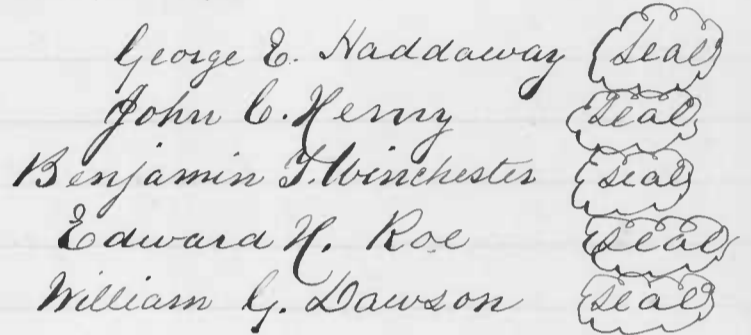 George E. Haddaway Seal
John C. Henry Seal
Benjamin F. Winchester Seal
Edward H. Roe Seal
William G. Dawson Seal